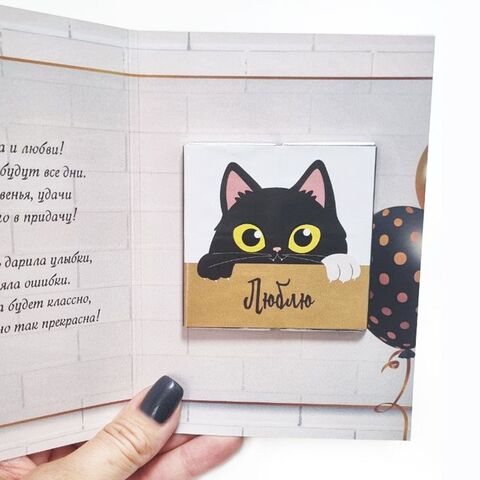 а и любви!
будут все дни.
венья, удачи
о в придачу!
дарила улыбки,
яла ошибки.
а будет классно,
но так прекрасна!
Люблю